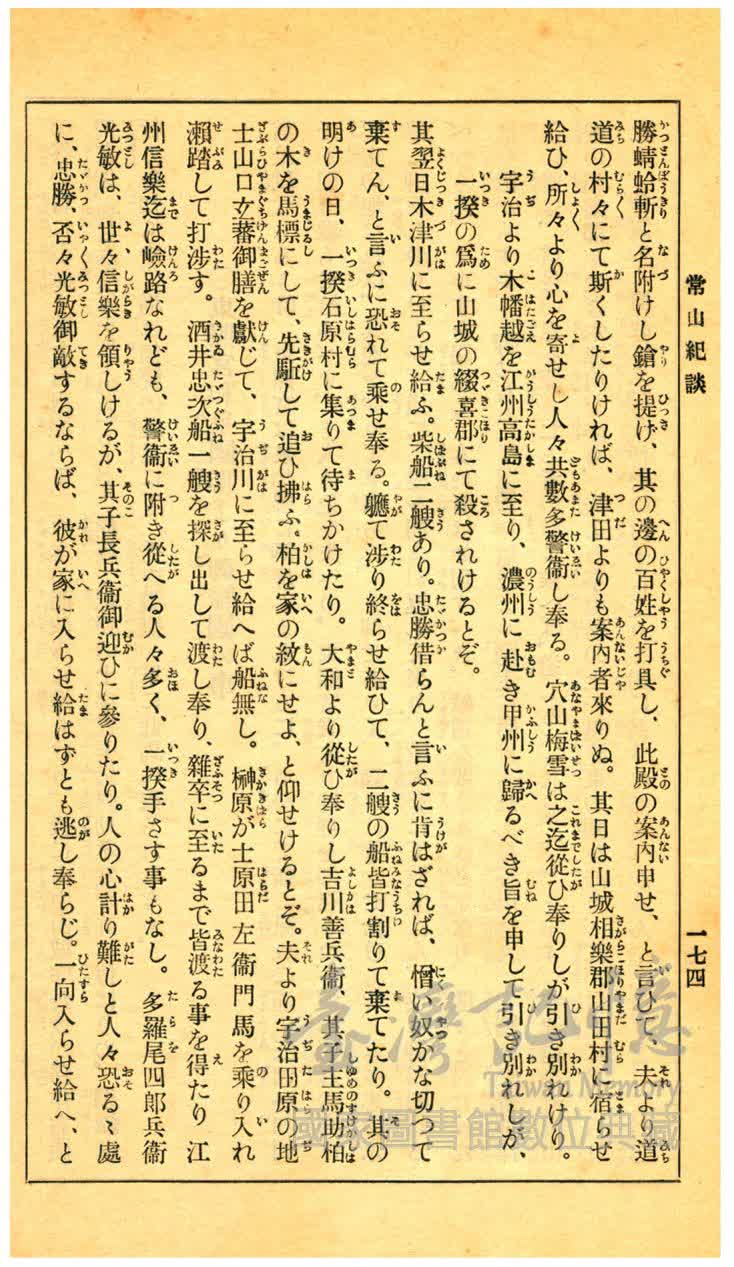 常山紀談
一七四
勝蜻蛉斬と名附けし鎗を提げ、其の邊の百姓を打具し、此殿の案內申せ、と言ひて、夫より道
道の村々にて斯くしたりければ、津田よりも案內者來りぬ。其日は山城相樂郡山田村に宿らせ
給ひ、所々より心を寄せし人々共數多警衞し奉る。穴山梅雪は之迄從ひ奉りしが引き別れけり。
宇治より木幡越を江州高島に至り、濃州に赴き甲州に歸るべき旨を申して引き別れしが、
一揆の爲に山城の綴喜郡にて殺されけるとぞ。
其翌日木津川に至らせ給ふ。柴船二艘あり。忠勝借らんと言ふに肯はざれば、憎い奴かな切つて
棄てん、と言ふに恐れて乘せ奉る。軈て涉り終らせ給ひて、二艘の船皆打割りて棄てたり。其の
明けの日、一揆石原村に集りて待ちかけたり。大和より從ひ奉りし吉川善兵衞、其子主馬助柏
の木を馬標にして、先駈して追ひ拂ふ。柏を家の紋にせよ、と仰せけるとぞ。夫より宇治田原の地
士山口玄蕃御膳を獻じて、宇治川に至らせ給へば船無し。榊原が士原田左衞門馬を乘り入れ
瀨踏して打涉す。酒井忠次船一艘を探し出して渡し奉り、雜卒に至るまで皆渡る事を得たり江
州信樂迄は嶮路なれども、警衞に附き從へる人々多く、一揆手さす事もなし。多羅尾四郎兵衞
光敏は、世々信樂を領しけるが、其子長兵衞御迎ひに參りたり。人の心計り難しと人々恐るゝ處
に、忠勝、否々光敏御敵するならば、彼が家に入らせ給はずとも逃し奉らじ。一向入らせ給へ、と
臺灣記憶
Taiwan Memory
國家圖書館數位典藏